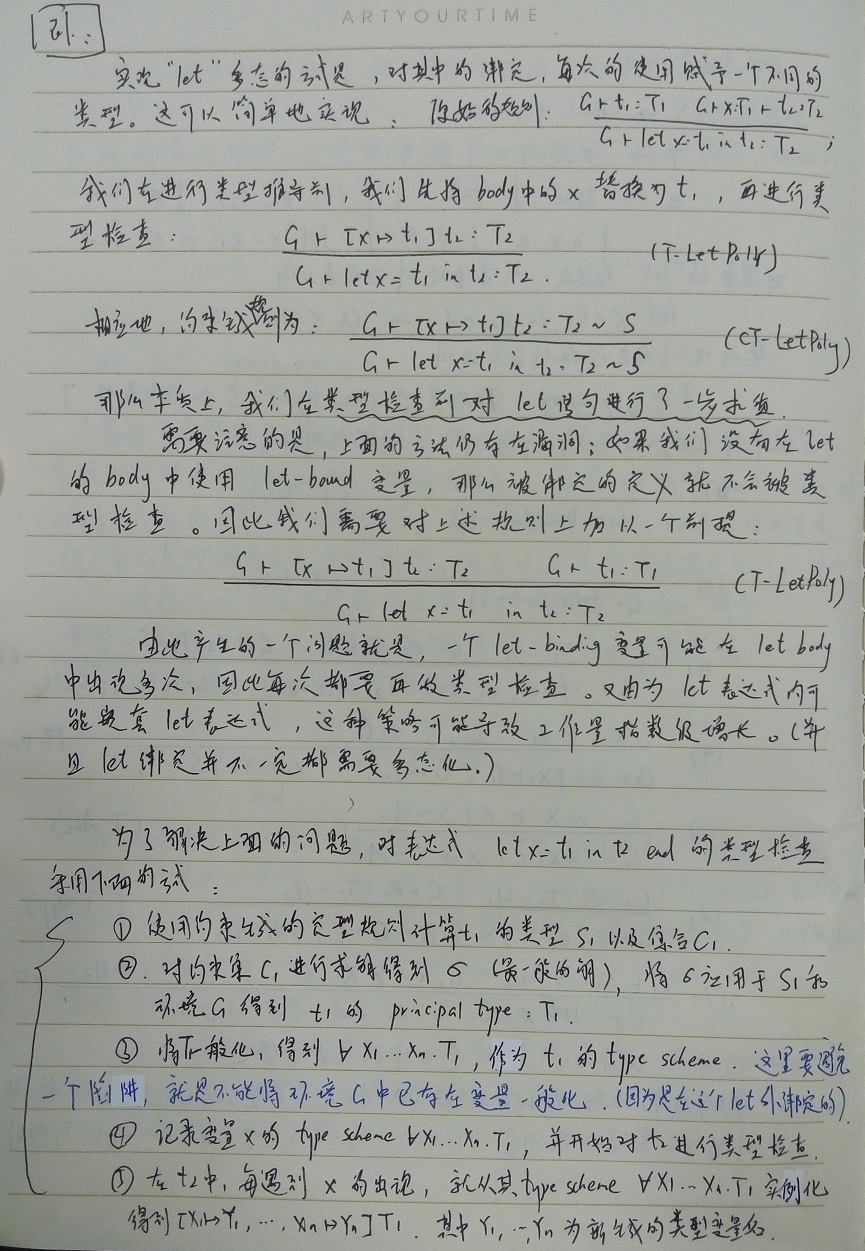 ARTYOURTIME
引:
实现"let"多态的方式是,对其中的绑定,每次的使用赋予一个不同的
类型。这可以简单地实现: 原始的规则: G ⊢ t₁:T₁ G,x:T₁ ⊢ t₂:T₂
G ⊢ let x=t₁ in t₂: T₂ ;
我们在进行类型推导前,我们先将 body中的 x 替换为 t₁,再进行类
型检查: G ⊢ [x ↦ t₁] t₂ : T₂
G ⊢ let x = t₁ in t₂ : T₂ . (T-LetPoly)
相应地,约束生成规则为: G ⊢ [x ↦ t₁] t₂ : T₂ ~ S
G ⊢ let x=t₁ in t₂ : T₂ ~ S (CT-LetPoly)
那么本质上,我们在类型检查前对 let 语句进行了一步求值.
需要注意的是,上面的方法仍存在漏洞;如果我们没有在 let
的 body 中使用 let-bound 变量,那么被绑定的定义就不会被类
型检查。因此我们需要对上述规则上加以一个前提:
G ⊢ [x ↦ t₁] t₂ : T₂ G ⊢ t₁ : T₁
G ⊢ let x = t₁ in t₂ : T₂ (T-LetPoly)
由此产生的一个问题就是,一个 let-binding 变量可能在 let body
中出现多次,因此每次都要再做类型检查。又由为 let 表达式内可
能嵌套 let 表达式,这种策略可能导致工作量指数级增长。(并
且 let 绑定并不一定都需要多态化.)
为了解决上面的问题,对表达式 let x=t₁ in t₂ end 的类型检查
采用下面的方式:
① 使用约束生成的定型规则计算 t₁ 的类型 S₁ 以及集合 C₁.
②. 对约束集 C₁ 进行求解得到 σ (最一般的解), 将 σ 应用于 S₁ 和
环境 G 得到 t₁ 的 principal type : T₁.
③ 将T₁一般化, 得到 ∀ X₁ ... Xn. T₁, 作为 t₁ 的 type scheme. 这里要避免
一个陷阱, 就是不能将环境 G 中已存在变量一般化. (因为是在这个 let 外绑定的)
④ 记录变量 x 的 type scheme ∀X₁ ... Xn. T₁, 并开始对 t₂ 进行类型检查.
⑤ 在 t₂ 中, 每遇到 x 的出现, 就从其 type scheme ∀X₁ ... Xn. T₁ 实例化
得到 [X₁ ↦ Y₁, ..., Xn ↦ Yn] T₁ . 其中 Y₁, ..., Yn 为新生成的类型变量